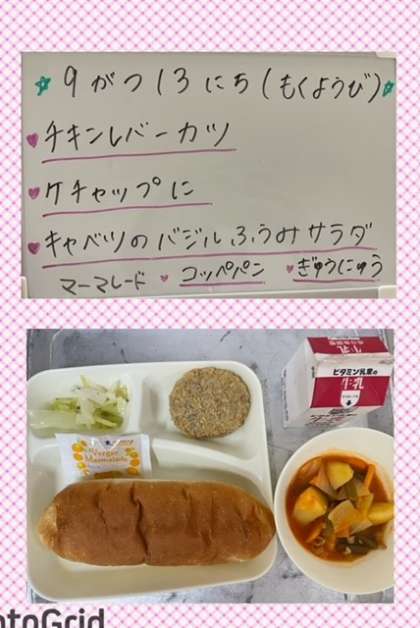 9がつ13にち(もくようび)
チキンレバーカツ
ケチャップに
キャベツのバジルふうみサラダ
マーマレード コッペパン ぎゅうにゅう
牛乳
ビタミン乳業の
牛乳
Marmalade
otoGrid